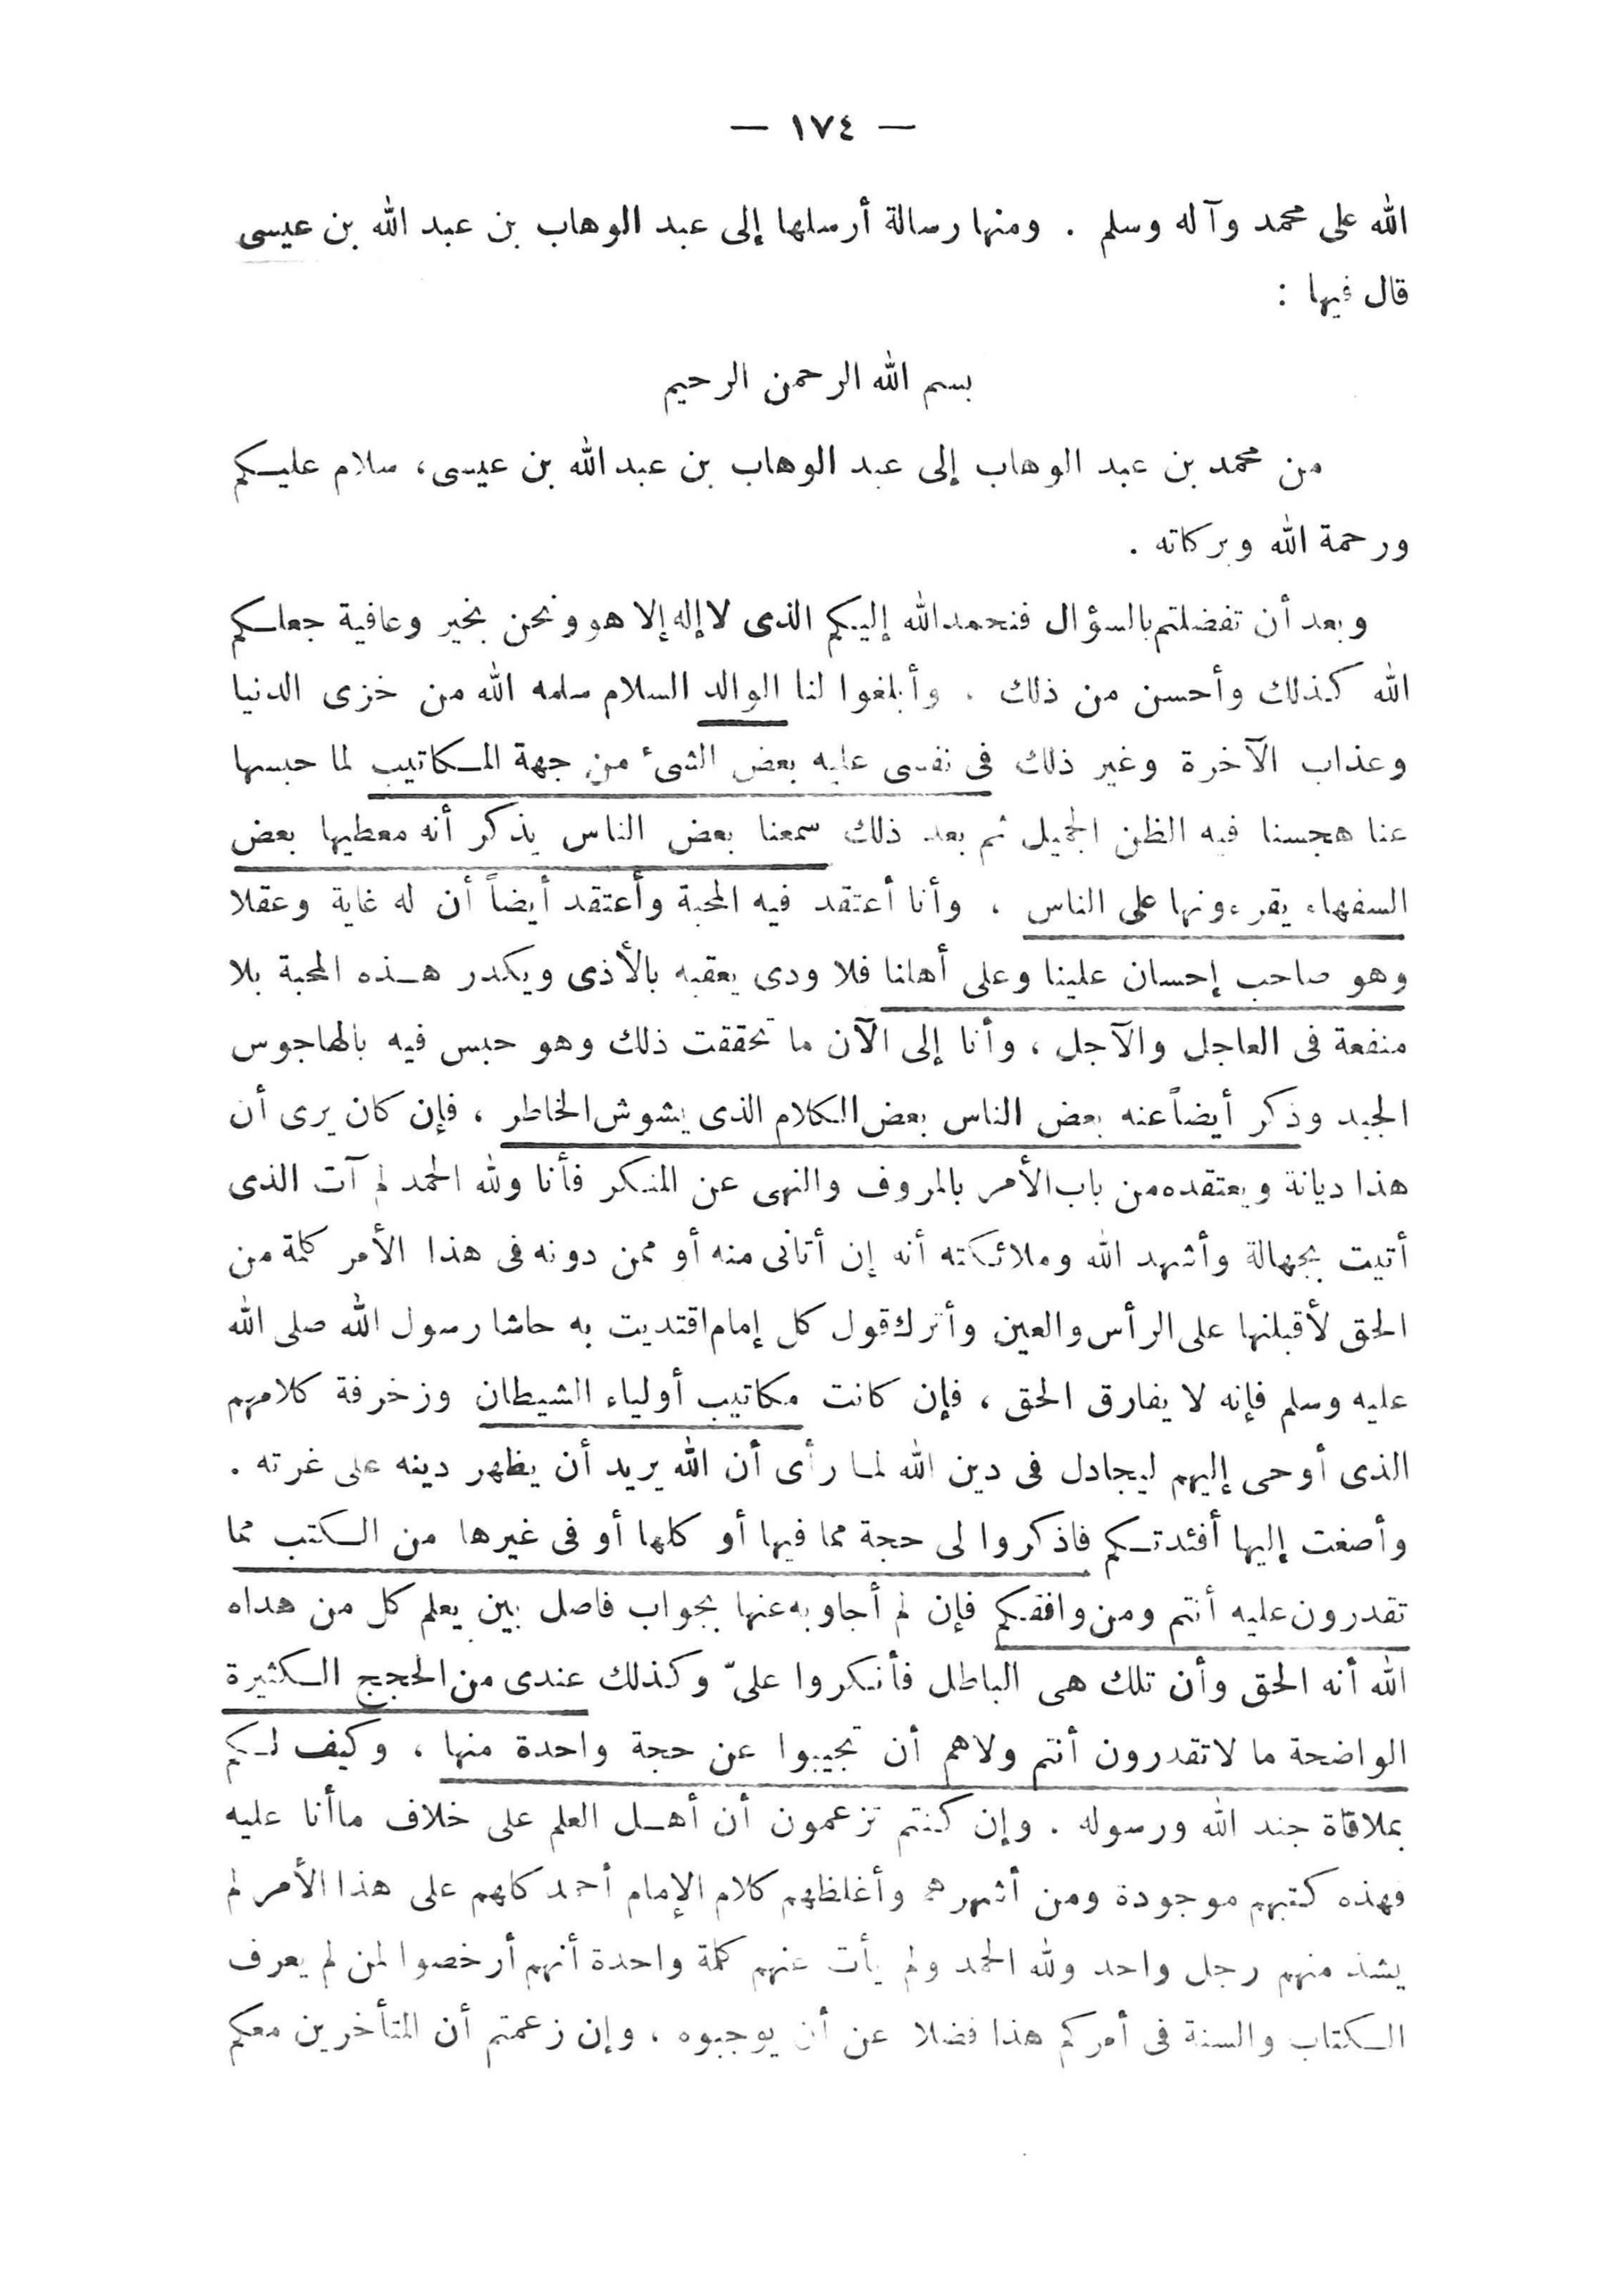 — ١٧٤ —
الله على محمد وآله وسلم . ومنها رسالة أرسلها إلى عبد الوهاب بن عبد الله بن عيسى
قال فيها :
بسم الله الرحمن الرحيم
من محمد بن عبد الوهاب إلى عبد الوهاب بن عبد الله بن عيسى، سلام عليكم
ورحمة الله وبركاته .
وبعد أن تفضلتم بالسؤال فنحمد الله إليكم الذى لا إله إلا هو ونحن بخير وعافية جعلكم
الله كذلك وأحسن من ذلك . وأبلغوا لنا الوالد السلام سلمه الله من خزى الدنيا
وعذاب الآخرة وغير ذلك فى نفسى عليه بعض الشئ من جهة المكاتيب لما حبسها
عنا هجسنا فيه الظن الجميل ثم بعد ذلك سمعنا بعض الناس يذكر أنه معطيها بعض
السفهاء يقرءونها على الناس ، وأنا أعتقد فيه المحبة وأعتقد أيضاً أن له غاية وعقلا
وهو صاحب إحسان علينا وعلى أهلنا فلا ودى يعقبه بالأذى ويكدر هذه المحبة بلا
منفعة فى العاجل والآجل ، وأنا إلى الآن ما تحققت ذلك وهو حبس فيه بالهاجوس
الجيد وذكر أيضاً عنه بعض الناس بعض الكلام الذى يشوش الخاطر ، فإن كان يرى أن
هذا ديانة ويعتقده من باب الأمر بالمروف والنهى عن المنكر فأنا ولله الحمد لم آت الذى
أتيت بجهالة وأشهد الله وملائكته أنه إن أتانى منه أو ممن دونه فى هذا الأمر كلمة من
الحق لأقبلنها على الرأس والعين وأترك قول كل إمام اقتديت به حاشا رسول الله صلى الله
عليه وسلم فإنه لا يفارق الحق ، فإن كانت مكاتيب أولياء الشيطان وزخرفة كلامهم
الذى أوحى إليهم ليجادل فى دين الله لما رأى أن الله يريد أن يظهر دينه على غرته .
وأصغت إليها أفئدتكم فاذكروا لى حجة مما فيها أو كلها أو فى غيرها من الكتب مما
تقدرون عليه أنتم ومن وافقكم فإن لم أجاوبه عنها بجواب فاصل بين يعلم كل من هداه
الله أنه الحق وأن تلك هى الباطل فأنكروا علىّ وكذلك عندى من الحجج الكثيرة
الواضحة ما لا تقدرون أنتم ولاهم أن تجيبوا عن حجة واحدة منها ، وكيف لكم
بملاقاة جند الله ورسوله . وإن كنتم تزعمون أن أهل العلم على خلاف ما أنا عليه
فهذه كتبهم موجودة ومن أشهرهم وأغلظهم كلام الإمام أحمد كلهم على هذا الأمر لم
يشذ منهم رجل واحد ولله الحمد ولم يأت عنهم كلمة واحدة أنهم أرخصوا لمن لم يعرف
الكتاب والسنة فى أمركم هذا فضلا عن أن يوجبوه ، وإن زعمتم أن المتأخرين معكم